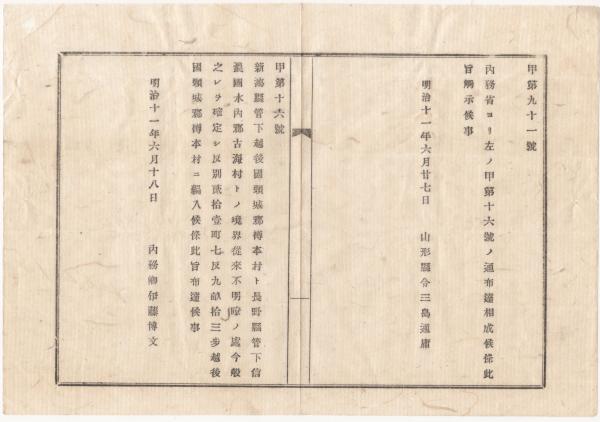 甲第九十一號
內務省ヨリ左ノ甲第十六號ノ通布達相成候條此
旨觸示候事
明治十一年六月廿七日
山形縣令三島通庸
甲第十六號
新潟縣管下越後國頸城郡樽本村ト長野縣管下信
濃國水內郡古海村トノ境界從來不明瞭ノ處今般
之レヲ確定シ反別貳拾壹町七反九畝拾三步越後
國頸城郡樽本村ニ編入候條此旨布達候事
明治十一年六月十八日
內務卿伊藤博文